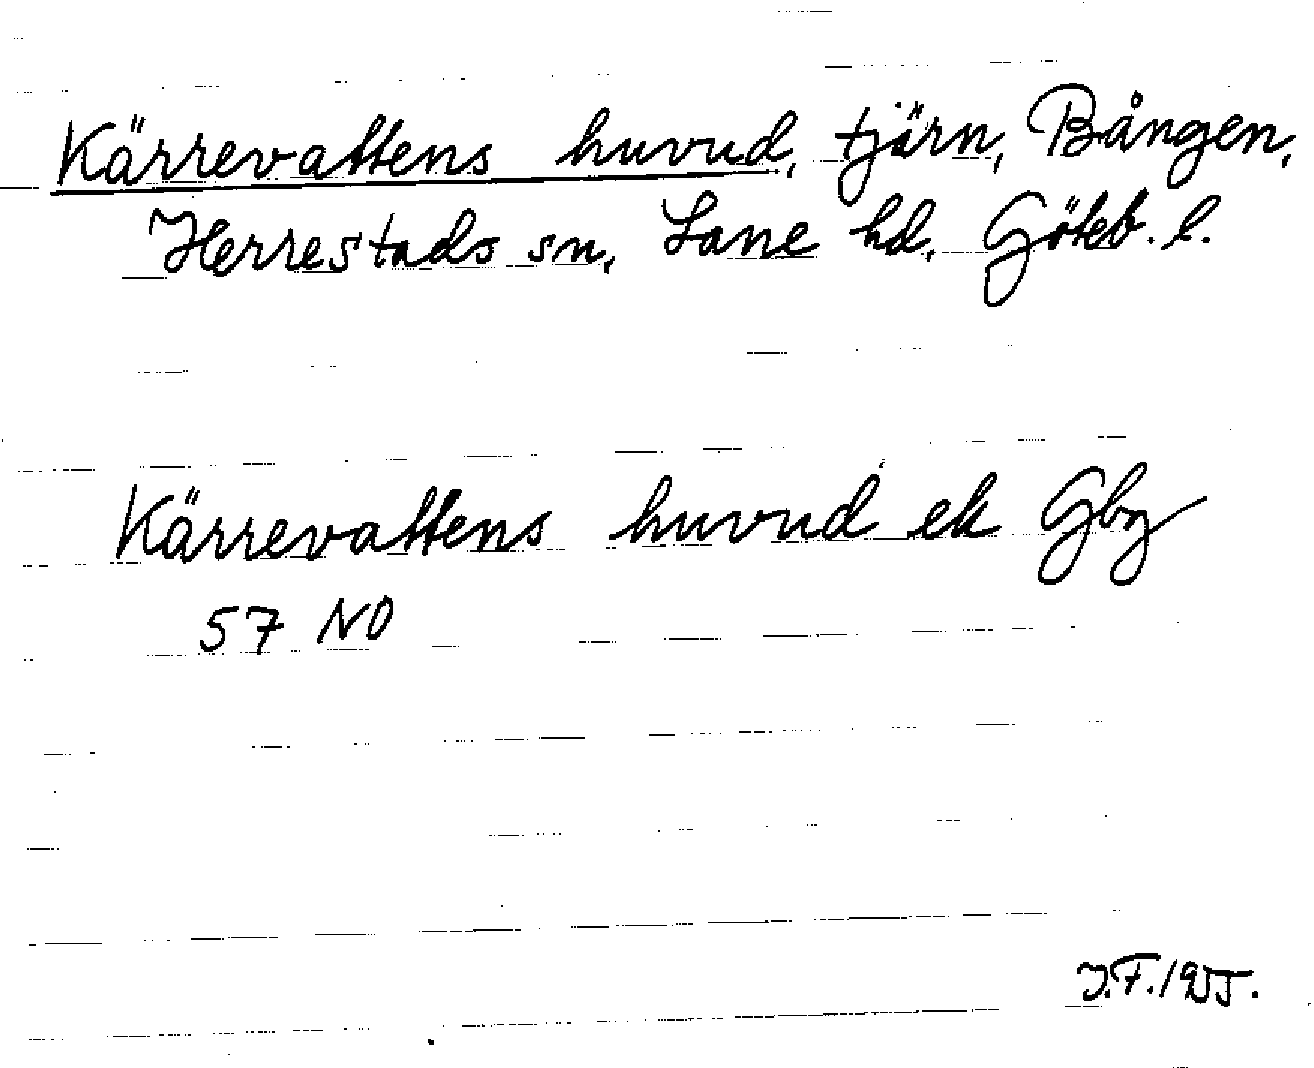 Kärrevattens huvud, tjärn, Bången,
Herrestads sn, Lane hd, Göteb. l.
Kärrevattens huvud ek Gbg
57 NO